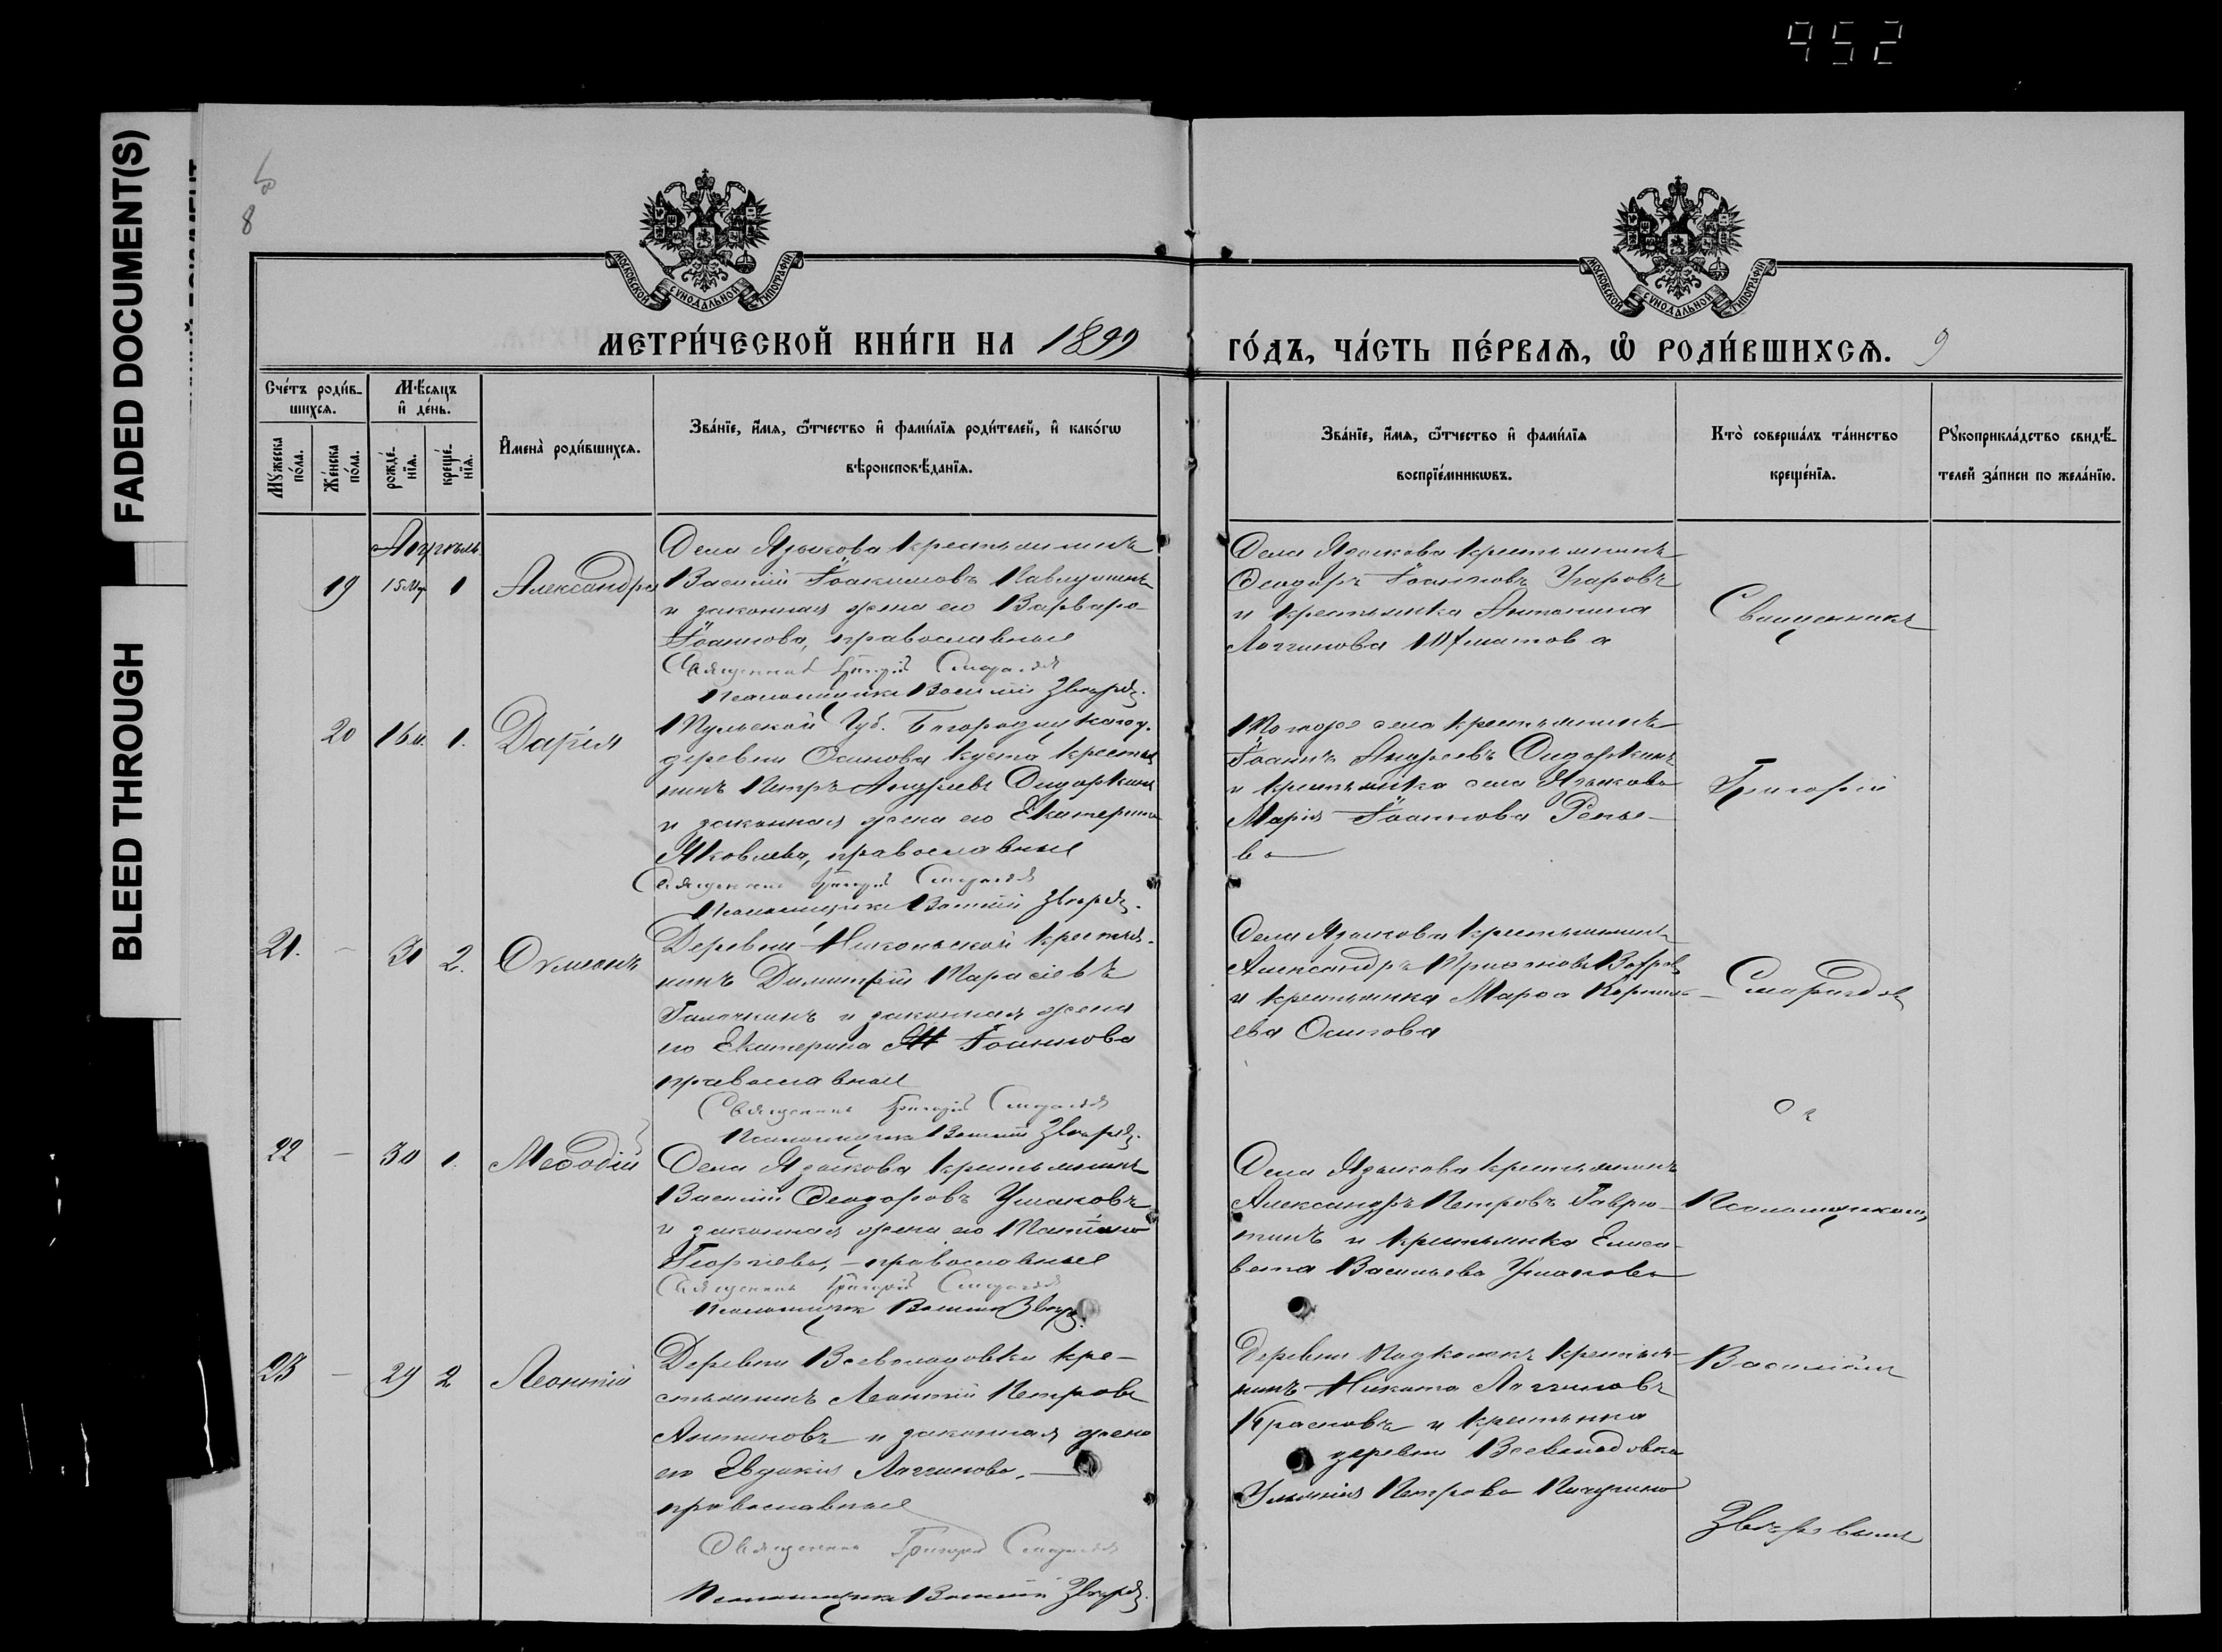 952
FADED DOCUMENT(S)
BLEED THROUGH
8
МОСКОВСКОЙ СѴНОДАЛЬНОЙ ТИПОГРАФІИ
МОСКОВСКОЙ СѴНОДАЛЬНОЙ ТИПОГРАФІИ
МЕТРИ́ЧЕСКОЙ КНИ́ГИ НА 1899
ГО́ДЪ, ЧА́СТЬ ПЕ́РВАѦ, Ѽ РОДИ́ВШИХСѦ. 9
Сче́тъ роди́в-
шихсѧ.
Мꙋ́жеска по́ла.
Же́нска по́ла.
Мѣ́сяцъ
и҆ де́нь.
рожде́-
нїѧ.
креще́-
нїѧ.
И҆мена̀ роди́вшихсѧ.
Зва́нїе, и҆́мѧ, ѻ҆́тчество и҆ фами́лїѧ роди́телей, и҆ како́гѡ
вѣроисповѣ́данїѧ.
Зва́нїе, и҆́мѧ, ѻ҆́тчество и҆ фами́лїѧ
воспрїе́мникѡвъ.
Кто̀ соверша́лъ та́инство
креще́нїѧ.
Рꙋкоприкла́дство свидѣ́-
телей за́писи по жела́нїю.
Апрѣль
19 15 Мр 1 Александра
Села Языкова крестьянинъ
Василій Іоакимовъ
и законная жена его Варвара
Іоаннова, православные
Священникъ Григорій Смарагдов
Псаломщикъ Василій Зверев.
Села Языкова крестьянинъ
Ѳеодоръ Іоанновъ Угаровъ
и крестьянка Антонина
Логгинова
Священникъ
20 16 м. 1. Дарія
Тульской Губ. Богородицкаго у.
деревни Осинова куста крестья
нинъ Петръ Андреевъ Сидоркинъ
и законная жена его Екатерина
Яковлева, православные
Священникъ Григорій Смарагдов
Псаломщикъ Василій Зверев.
Тогоже села крестьянинъ
Іоаннъ Андреевъ Сидоркинъ
и крестьянка села Языкова
Марія Іоаннова Репье-
ва
Григорій
21. — 31 2.
Деревни Никольской крестья-
нинъ Димитрій Тарасіевъ
Галочкинъ и законная жена
его Екатерина Іоаннова
православные
Священникъ Григорій Смарагдов
Псаломщикъ Василій Зверев.
Села Языкова крестьянинъ
Александръ
и крестьянка Марѳа Корнил-
ева Осипова
Смарагдов
22 — 30 1. Меѳодій
Села Языкова крестьянинъ
Василій Ѳеодоровъ Ушаковъ
и законная жена его Татіана
Георгіева, — православные
Священникъ Григорій Смарагдов
Псаломщикъ Василій Зверев.
Села Языкова крестьянинъ
Александръ Петровъ Гаврю-
тинъ и крестьянка Елиса-
вета Васильева Ушакова
съ
Псаломщикомъ
23 — 29 2 Леонтій
Деревни Всеволодовки кре-
стьянинъ Леонтій Петровъ
Антиповъ и законная жена
его Евдокія Логгинова, —
православные
Священникъ Григорій Смарагдов
Псаломщикъ Василій Зверев.
Деревни крестья-
нинъ Никита Логгиновъ
Красновъ и крестьянка
деревни Всеволодовка
Петрова Пичугина
Василіемъ
Зверевымъ